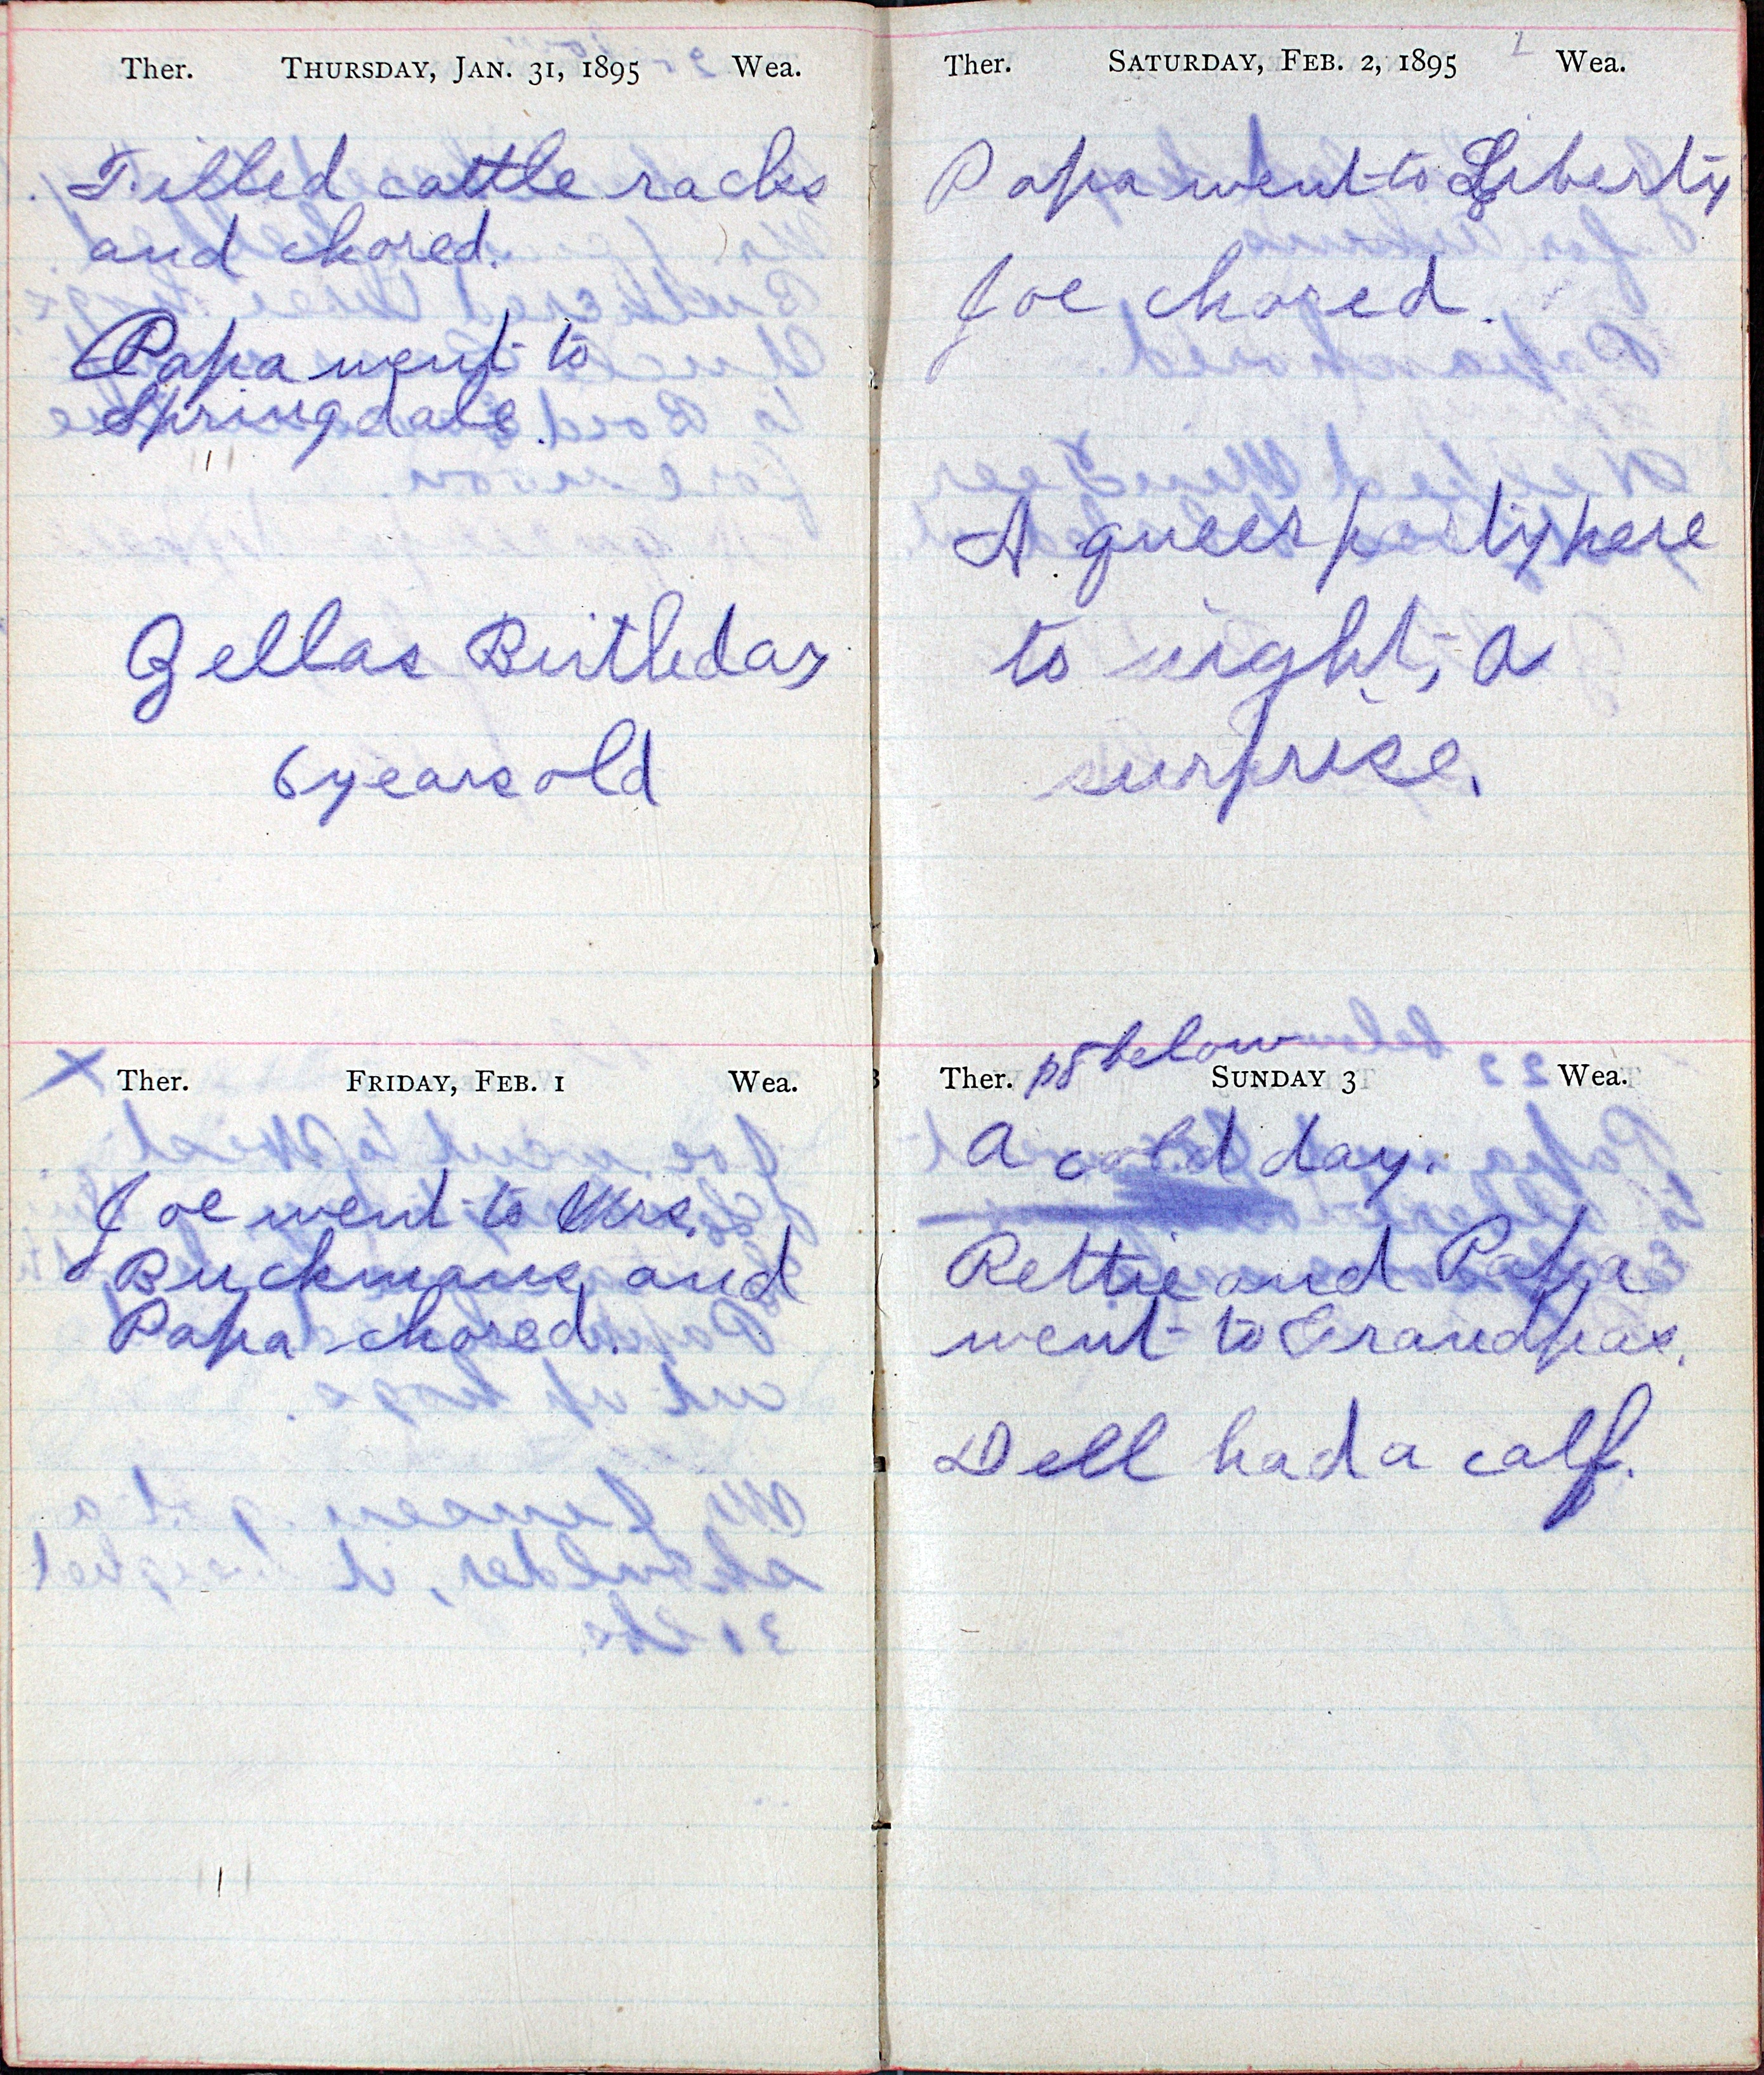 Ther. THURSDAY, JAN. 31, 1895 Wea.
Filled cattle racks
and chored.
Papa went to
Springdale.
Zellas Birthday
6 years old
Ther. FRIDAY, FEB. 1 Wea.
Joe went to Mrs.
Buckmans, and
Papa chored.
Ther. SATURDAY, FEB. 2, 1895 Wea.
Papa went to Liberty
Joe chored.
A queer p ty here
to night, a
surprise.
below
Ther. SUNDAY 3 Wea.
A cold day.
Rettie and Papa
went to Grandpas.
Dell had a calf.